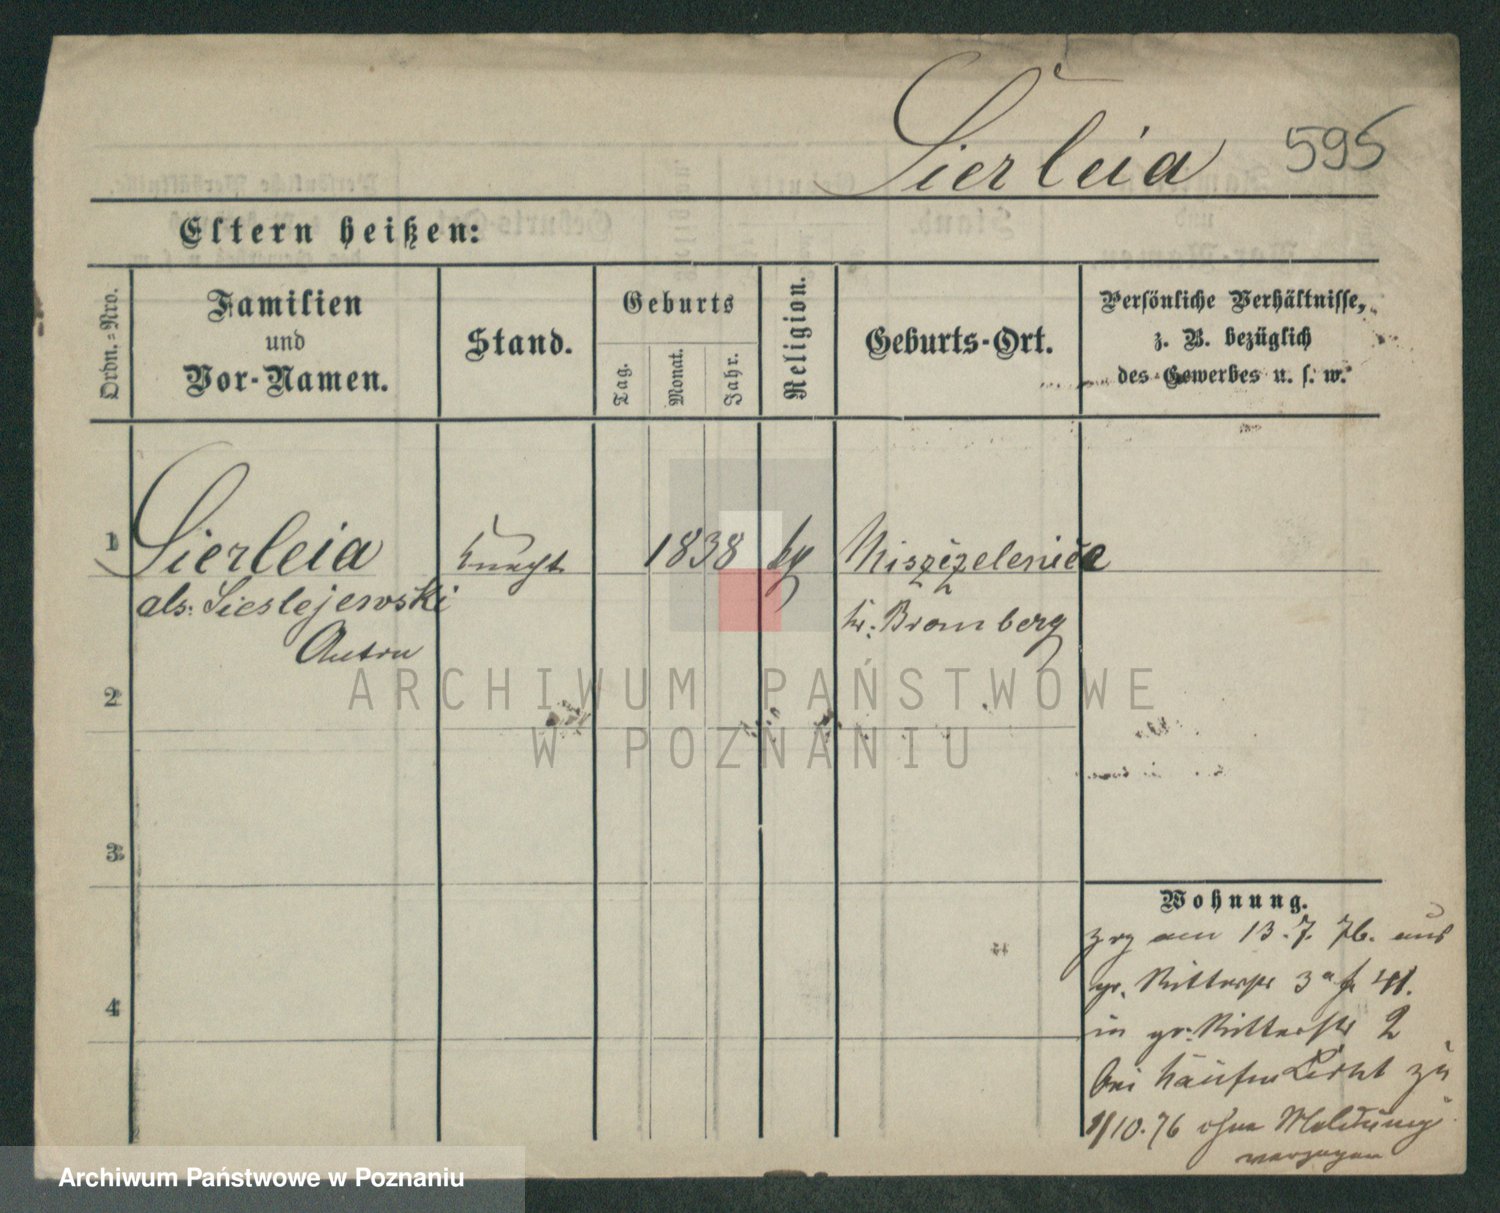 Sierleia 595
Eltern heißen:
Ordn.-Nro.
Familien
und
Vor-Namen.
Stand.
Geburts
Tag.
Monat.
Jahr.
Religion.
Geburts-Ort.
Persönliche Verhältnisse,
z. B. bezüglich
des Gewerbes u. s. w.
1 Sierleia Knecht 1838 Miszczelenice
als: Sieslejewski Kr. Bromberg
Anton
2
3
4
Wohnung.
zog am 13.7.76. aus
gr. Ritterstr 3a
in gr. Ritterstr 2
bei zu
1/10.76 ohne Meldung
verzogen
ARCHIWUM PAŃSTWOWE
W POZNANIU
Archiwum Państwowe w Poznaniu